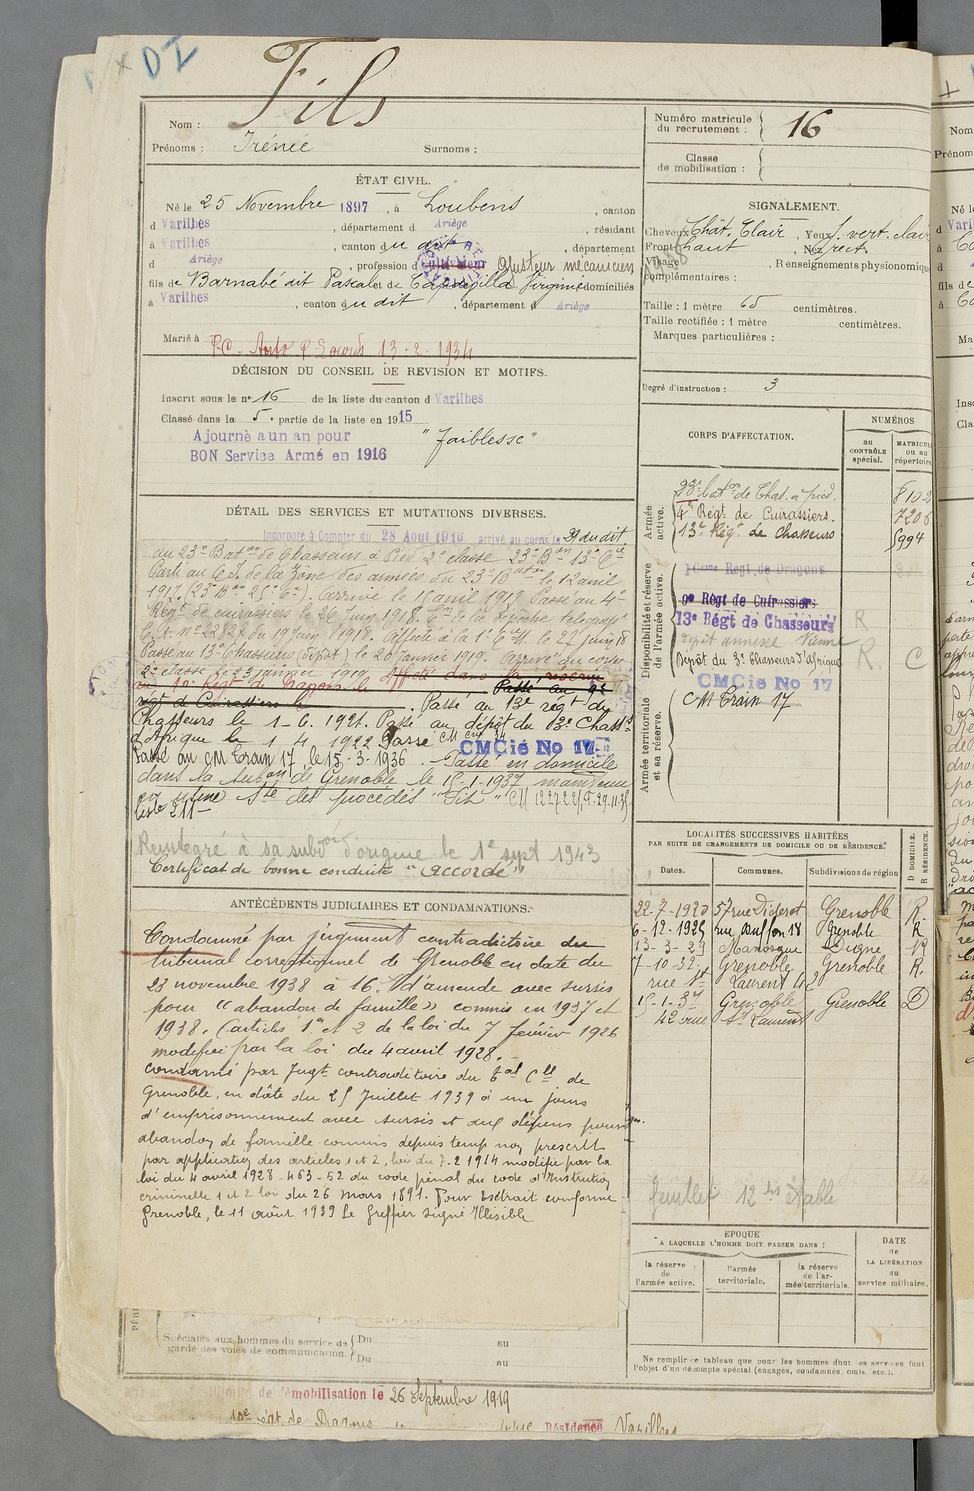 DI
Nom : Fils
Prénoms : Irénée Surnoms :
Numéro matricule du recrutement : 16
Classe de mobilisation :
ÉTAT CIVIL.
Né le 25 Novembre 1897, à Loubens, canton
d Varilhes, département d Ariège, résidant
à Varilhes, canton du dit, département
d Ariège, profession d cultivateur Ajusteur mécanicien
fils de Barnabé dit Pascal et de Virginie domiciliés
à Varilhes, canton du dit, département d Ariège
Marié à 13-2-1934
SIGNALEMENT.
Cheveux Chât. Clair, Yeux vert clair
Front haut, Nez rect.
Visage Renseignements physionomiques
complémentaires :
Taille : 1 mètre 65 centimètres.
Taille rectifiée : 1 mètre centimètres.
Marques particulières :
Degré d'instruction : 3
DÉCISION DU CONSEIL DE REVISION ET MOTIFS.
Inscrit sous le n° 16 de la liste du canton d Varilhes
Classé dans la 5e partie de la liste en 1915
Ajourné a un an pour "faiblesse"
BON Service Armé en 1916
DÉTAIL DES SERVICES ET MUTATIONS DIVERSES.
Incorporé à Compter du 28 Aout 1916 arrivé au corps le dit
au 23e Bat on de Chasseurs à Pied 2e classe 23e Bon 13e Cie
Parti au C.I. de la Zône des armées du 23e Bon le 12 avril
1917. arrivé le 15 avril 1917 Passé au 4e
Régt de cuirassiers le 26 juin 1918. de la dépêche télégraph
n° 22827 du 19 juin 1918. Affecté à la 1e le 27 juin 18
Passé au 13e Chasseurs (Dépôt) le 20 Janvier 1919. Arrivé au corps
2e classe le 23 janvier 1919 Affecté dans la réserve
au 10e régt de Dragons le Passé au 9e
régt de Cuirassiers le . Passé au 13e régt du
Chasseurs le 1-6. 1921. Passé au dépôt du 13e Chass
d'Afrique le 1 4 1922 Passé CMCie No 17
Passé au CM Train 17, le 15-3-1936. Passé en domicile
dans la subon de Grenoble le 15-1-1937 maintenu
en usine Sté des procédés
liste 211
Reintegré à sa subon d'origine le 1e sept 1943
Certificat de bonne conduite "accordé"
CORPS D'AFFECTATION.
NUMÉROS
au CONTRÔLE spécial.
MATRICULE ou au répertoire
Armée active.
23e baton de Chas. à pied. 8102
4e Régt de Cuirassiers. 7206
13e Régt de Chasseurs 5994
Disponibilité et réserve de l'armée active.
10ème Regt de Dragons
9e Régt de Cuirassiers
13e Régt de Chasseurs R
Dépôt annexe Vienne
Dépôt du 3e Chasseurs d'Afrique R. C
CMCie No 17
Armée territoriale et sa réserve.
CM Train 17
LOCALITÉS SUCCESSIVES HABITÉES
PAR SUITE DE CHANGEMENTS DE DOMICILE OU DE RÉSIDENCE.
Dates. Communes. Subdivisions de région D DOMICILE. R RÉSIDENCE.
22-7-1920 57 rue Diderot Grenoble R.
6-12-1925 rue Buffon 18 Grenoble R
13-3-29 Manosque Digne R
7-10-32 Grenoble Grenoble R.
rue St Laurent 42
15-1-37 Grenoble Grenoble D
42 rue St Laurent
ANTÉCÉDENTS JUDICIAIRES ET CONDAMNATIONS.
Condamné par jugement contradictoire du
tribunal correctionnel de Grenoble en date du
23 novembre 1938 à 16. d'amende avec sursis
pour "abandon de famille" commis en 1937 et
1938. (articles 1er et 2 de la loi du 7 février 1926
modifié par la loi du 4 avril 1928.-
Condamné par Jugt contradictoire du Tal Cel de
Grenoble, en dâte du 25 Juillet 1939 à un jours
d'emprisonnement avec sursis et aux dépens pour
abandon de famille commis depuis temps non prescrit
par application des articles 1 et 2, loi du 7-2 1914 modifié par la
loi du 4 avril 1928 - 463-52 du code pénal du code d'Instruction
criminelle 1 et 2 loi du 26 mars 1891. Pour Extrait conforme
Grenoble, le 11 août 1939 Le Greffier signé Illisible
Feuillet 12 bis établi
ÉPOQUE
A LAQUELLE L'HOMME DOIT PASSER DANS :
la réserve de l'armée active.
l'armée territoriale.
la réserve de l'armée territoriale.
DATE de LA LIBÉRATION du service militaire.
Ne remplir ce tableau que pour les hommes dont les services font
l'objet d'un décompte spécial (engagés, condamnés, omis, etc.).
Spéciales aux hommes du service de garde des voies de communication. Du au
Du au
de démobilisation le 26 Septembre 1919
10e régt de Dragons Résidence Varilhes